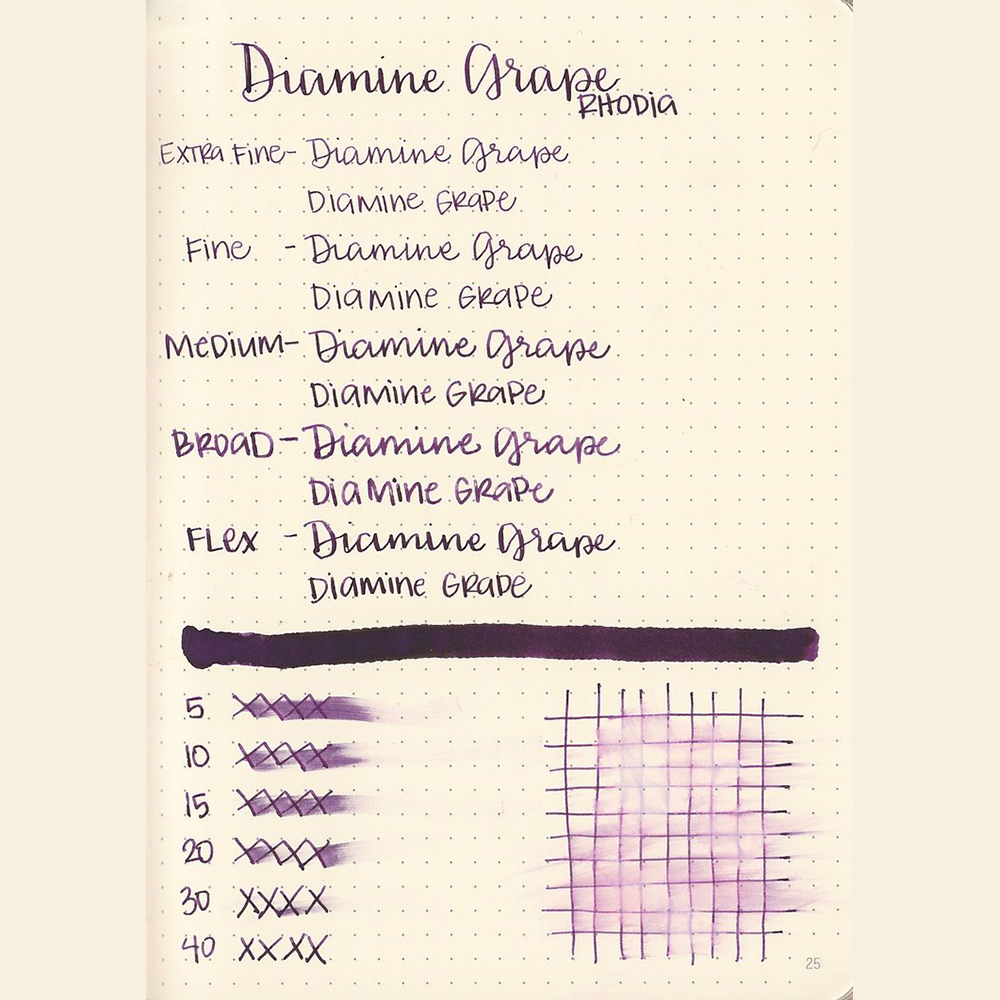 Diamine Grape
RHODIA
EXTRA FINE - Diamine Grape
DIAMINE GRAPE
FINE - Diamine Grape
DIAMINE GRAPE
MEDIUM - Diamine Grape
DIAMINE GRAPE
BROAD - Diamine Grape
DIAMINE GRAPE
FLEX - Diamine Grape
DIAMINE GRAPE
5 XXXX
10 XXXX
15 XXXX
20 XXXX
30 XXXX
40 XXXX
25